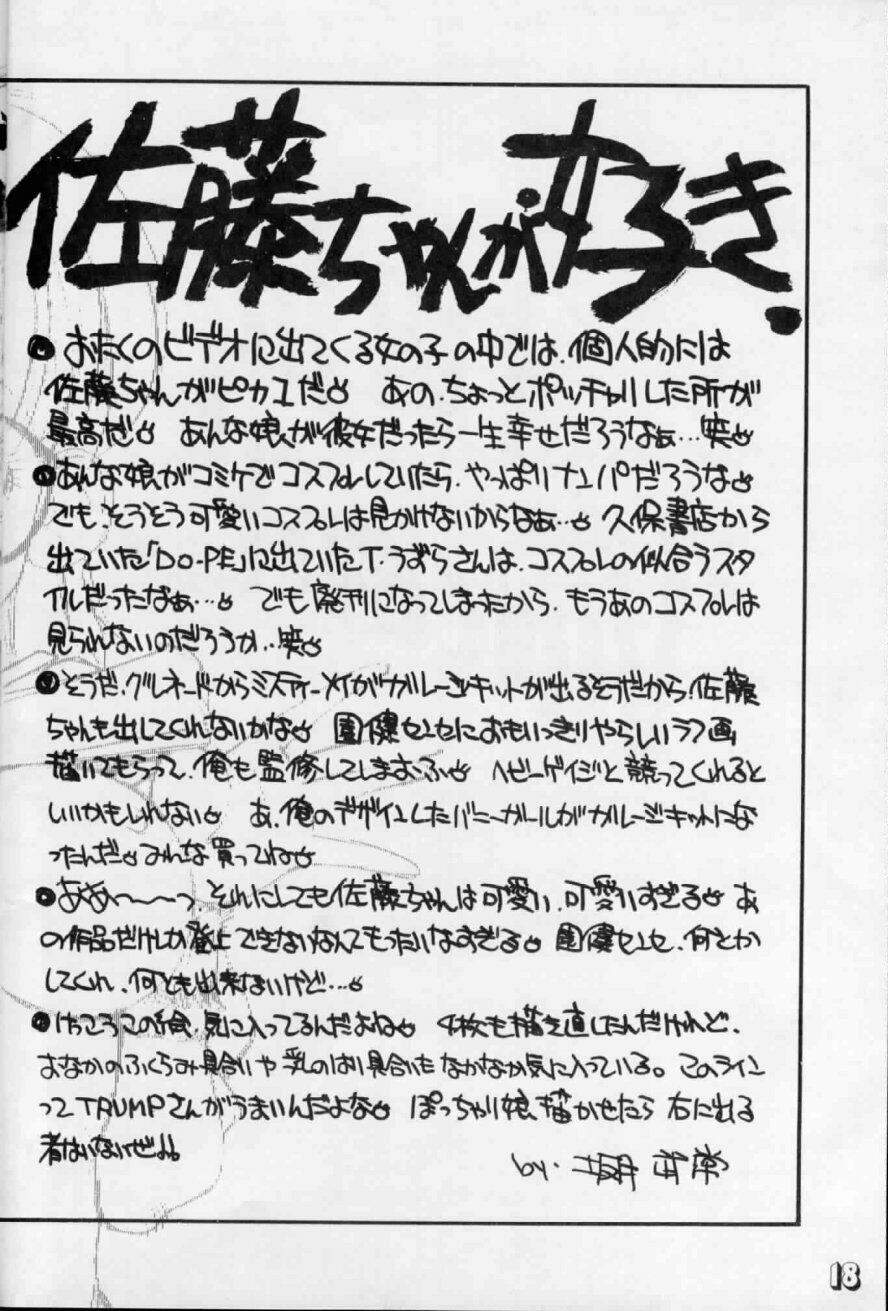 佐藤ちゃんが好き.
●おたくのビデオに出てくる女の子の中では、個人的には
佐藤ちゃんがピカ1だ あの、ちょっとポッチャリした所が
最高だ あんな娘が彼女だったら一生幸せだろうなぁ…笑
●あんな娘がコミケでコスプレしていたら、やっぱりナンパだろうな
でも、そうそう可愛いコスプレは見かけないからなぁ… 久保書店から
出ていた「DO-PE」に出ていたT・うずらさんは、コスプレの似合うスタ
イルだったなぁ… でも廃刊になってしまったから、もうあのコスプレは
見られないのだろうか…笑
●そうだ、グルネードからミスティーメイがガレージキットが出るそうだから、佐藤
ちゃんも出してくれないかな 園健センセにおもいっきりやらしいラフ画
描いてもらって、俺も監修してしまおふ ヘビーゲイジと競ってくれると
いいかもしれない あ、俺のデザインしたバニーガールがガレージキットにな
ったんだ みんな買ってね
●ああ〜〜〜っ、それにしても佐藤ちゃんは可愛い、可愛いすぎる あ
の作品だけしか登上できないなんてもったいなすぎる 園健センセ、何とか
してくれ、何とも出来ないけど…
●けっこうこの絵、気に入ってるんだよね 4枚も描き直したんだけれど、
おなかのふくらみ具合いや乳のはり具合いもなかなか気に入っている。このライン
ってTRUMPさんがうまいんだよな ぽっちゃり娘、描かせたら右に出る
者はいないぜ
by.
18